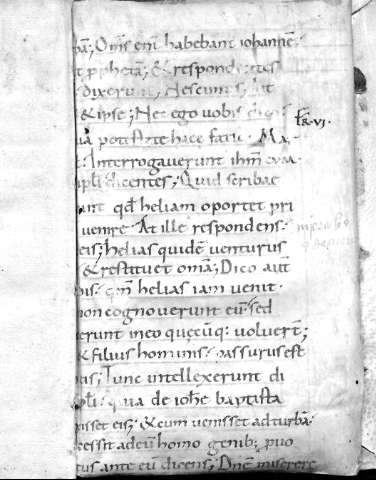 bā; Om̄s enī habebant iohanne
t prophetā; & responderites
dixerunt; Nescimus; Ait
& ipse; Nec ego uobis dico
ua potestate haec facio. Ma
Fr̄ VI.
t; Interrogauerunt ihm̄ eum
ipli dicentes; Quid scribae
unt qđ heliam oportet pri
uenire. At ille respondens.
eis; helias quidē uenturus
& restituet omīa; Dico aūt
bis. qm̄ helias iam uenit.
non cognouerunt eū. sed
erunt in eo quęcūq: uoluer̄t;
& filius hominis. passurus est
eis; Tunc intellexerunt di
pli. quia de ioh̄e baptista
isset eis; & cum uenisset ad turbā.
cessit ad eū homo genib; puo
tus ante eū dicens; Dn̄e miserere